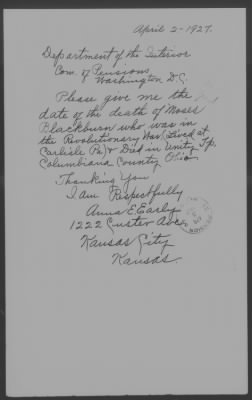 April 2-1927.
Department of the Interior
Com. of Pensions
Washington D.C.
Please give me the
date of the death of Moses
Blackburn who was in
the Revolutionary War, Lived at
Carlisle Pa, & Died in Unity Tp,
Columbiana County Ohio.
Thanking You
I am Respectfully
Anna E. Early
1222 Custer Ave.
Kansas City
Kansas.